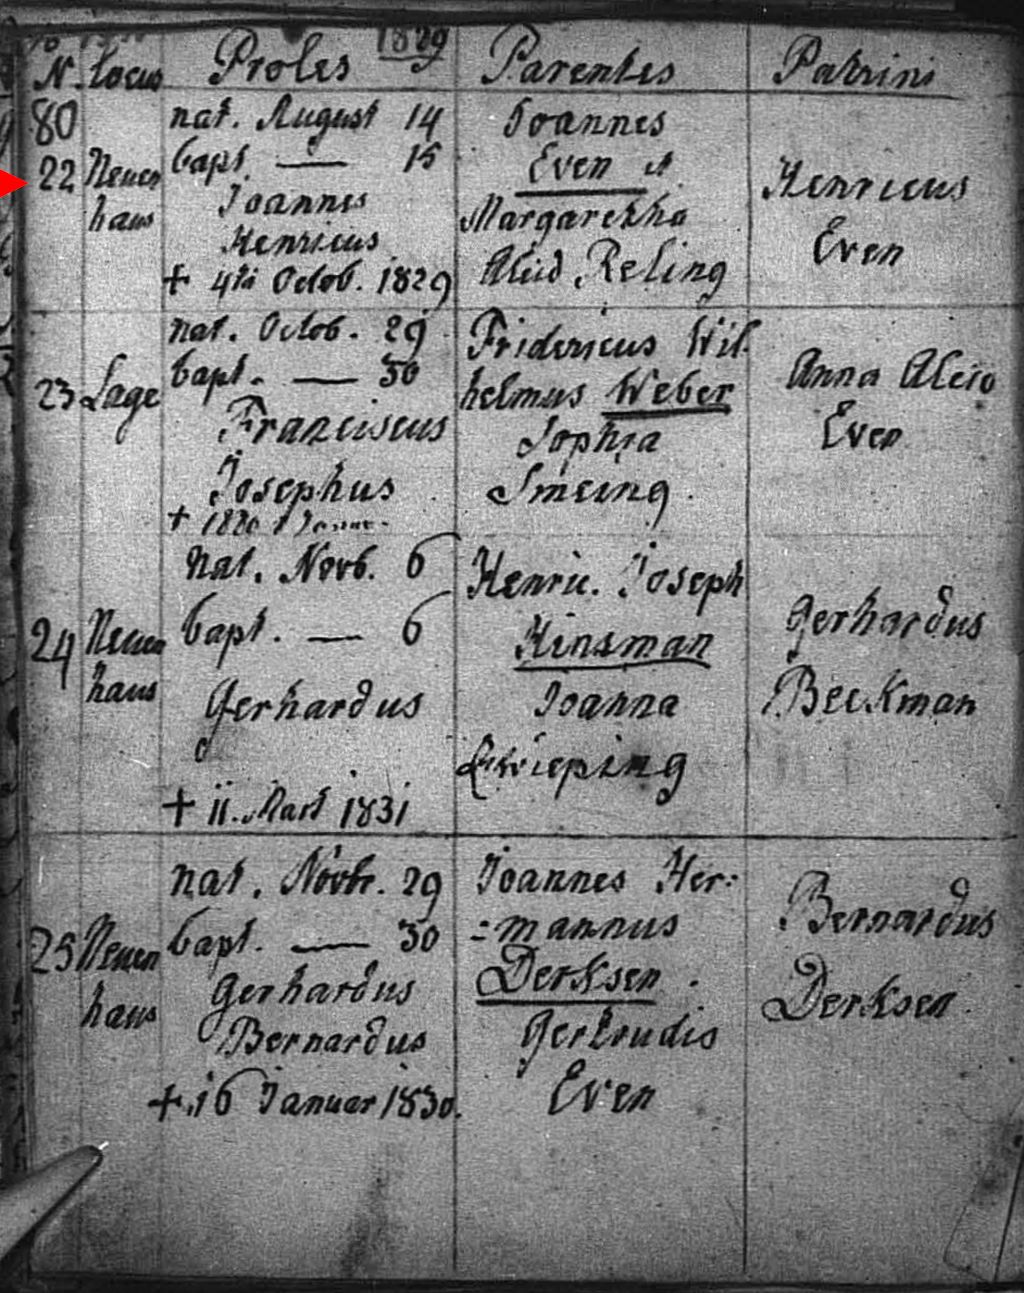 1829
N. Locus Proles Parentes Patrini
80
22 Neuen
haus
nat. August 14
bapt. — 15
Joannes
Henricus
+ 4ta Octob. 1829
Joannes
Even et
Margaretha
Aleid Reling
Henricus
Even
23 Lage
nat. Octob. 29
bapt. — 30
Franciscus
Josephus
+ 1830 Januar.
Fridericus Wil
helmus Weber
Sophia
Smeing.
Anna Aleid
Even
24 Neuen
haus
nat. Novb. 6
bapt. — 6
Gerhardus
+ 11. Mart 1831
Henric. Joseph
Hinsman
Joanna
Gerhardus
Beckman
25 Neuen
haus
nat. Novbr. 29
bapt. — 30
Gerhardus
Bernardus
+ 16 Januar 1830.
Joannes Her=
=mannus
Derksen.
Gertrudis
Even
Bernardus
Derksen.